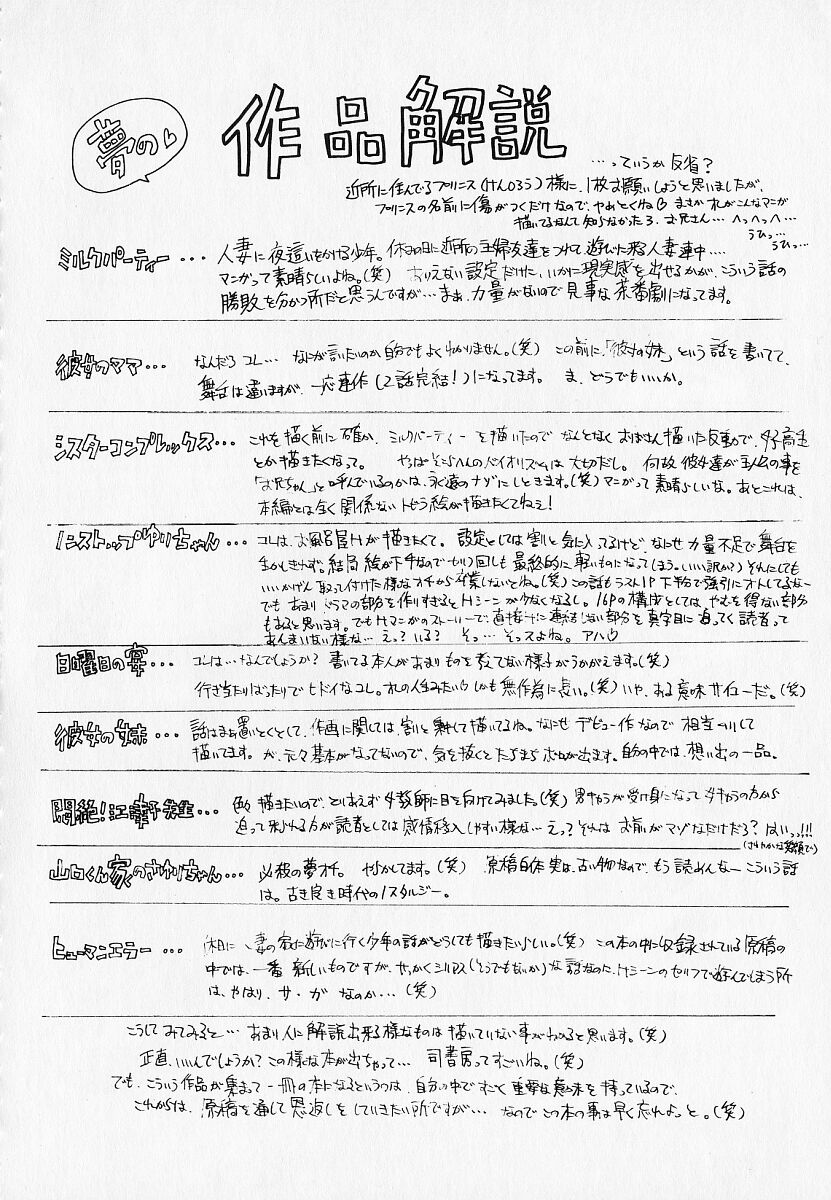 夢の
作品解説
…っていうか反省?
近所に住んでるプリンス(けんじろう)様に、1枚お願いしようと思いましたが、
プリンスの名前に傷がつくだけなので、やめとくね まさかオレがこんなマンガ
描いてるなんて知らなかったろ、お兄さん…へっへっへ…
うひっ…
うひっ…
ミルクパーティー… 人妻に夜這いをかける少年。休みの日に近所の主婦友達をつれて遊びに来る人妻連中…
マンガって素晴らしいよね。(笑) ありえない設定だけに、いかに現実感を出せるかが、こういう話の
勝敗を分かつ所だと思うんですが…まぁ、力量がないので見事な茶番劇になってます。
彼女のママ… なんだろコレ… なにが言いたいのか自分でもよくわかりません。(笑) この前に、「彼女の妹」という話を書いてて、
舞台は違いますが、一応連作(2話完結!)になってます。 ま、どうでもいいか。
シスターコンプレックス… これを描く前に確か、ミルクパーティーを描いたので なんとなくおばさん描いた反動で、女子高生
とか描きたくなって。 やっぱそこらへんのバイオリズムは大切だし。 何故彼女達が主人公の事を
「お兄ちゃん」と呼んでいるのかは、永遠のナゾにしときます。(笑)マンガって素晴らしいな。あとこれは、
本編とは全く関係ないトビラ絵が描きたくてねェ!
ノンストップゆりちゃん… コレは、お風呂屋Hが描きたくて。 設定としては割と気に入ってるけど、なにせ力量不足で舞台を
生かしきれず。結局絵が下手なのでセリフ回しも最終的に軽いものになってしまう。(いい訳か?)それにしても
いいかげん取って付けた様なオチから卒業しないとね。(笑)この話もラスト1P下物で強引にオトしてるなー
でもあまりドラマの部分を作りすぎるとHシーンが少なくなるし。16Pの構成としては、やむを得ない部分
もあると思います。でもHマンガのストーリーで、直接Hに連結しない部分を真字目に追ってく読者って
あんまいない様な…えっ?いる? そっ…そっスよね。アハ
日曜日の宴… コレは…なんでしょうか? 書いてる本人があまりものを考えてない様子がうかがえます。(笑)
行き当たりばったりでヒドイなコレ。オレの人生みたい しかも無作為に長い。(笑)いや、ある意味サイコーだ。(笑)
彼女の妹… 話はまぁ置いとくとして、作画に関しては割と静して描いてるね。なにせデビュー作なので 相当
描いてます。が、元々基本がなってないので、気を抜くとたちまちボロが出ます。自分の中では、想い出の一品。
悶絶!江幸子先生… 色々描きたいので、とりあえず女教師に目を向けてみました。(笑) 男キャラが受け身になって女キャラの方から
迫って来られる方が読者としては感情移入しやすい様な…えっ?それは お前がマゾなだけだろ? はいっ!!!
(さわやかな笑顔で)
山口くん家のさゆりちゃん… 必殺の夢オチ。 やらかしてます。(笑) 原稿自体 実は、古い物なので、もう読めんなーこういう話
は。古き良き時代のノスタルジー。
ヒューマンエラー… 俺相に人妻の家に遊びに行く少年の話がどうしても描きたいらしい。(笑) この本の中に収録されている原稿の
中では、一番新しいものですが、せっかくシリアス(そうでもないか)な話なのに、Hシーンのセリフで遊んでしまう所
は、やはり、サ・ガ なのか…(笑)
こうしてみてみると… あまり人に解説出来る様なものは描いていない事がわかると思います。(笑)
正直、いいんでしょうか?この様な本が出ちゃって… 司書房ってすごいね。(笑)
でも、こういう作品が集まって一冊の本になるというのは、自分の中ですごく重要な意味を持っているので、
これからは、原稿を通して恩返しをしていきたい所ですが… なのでこの本の事は早く忘れよっと。(笑)